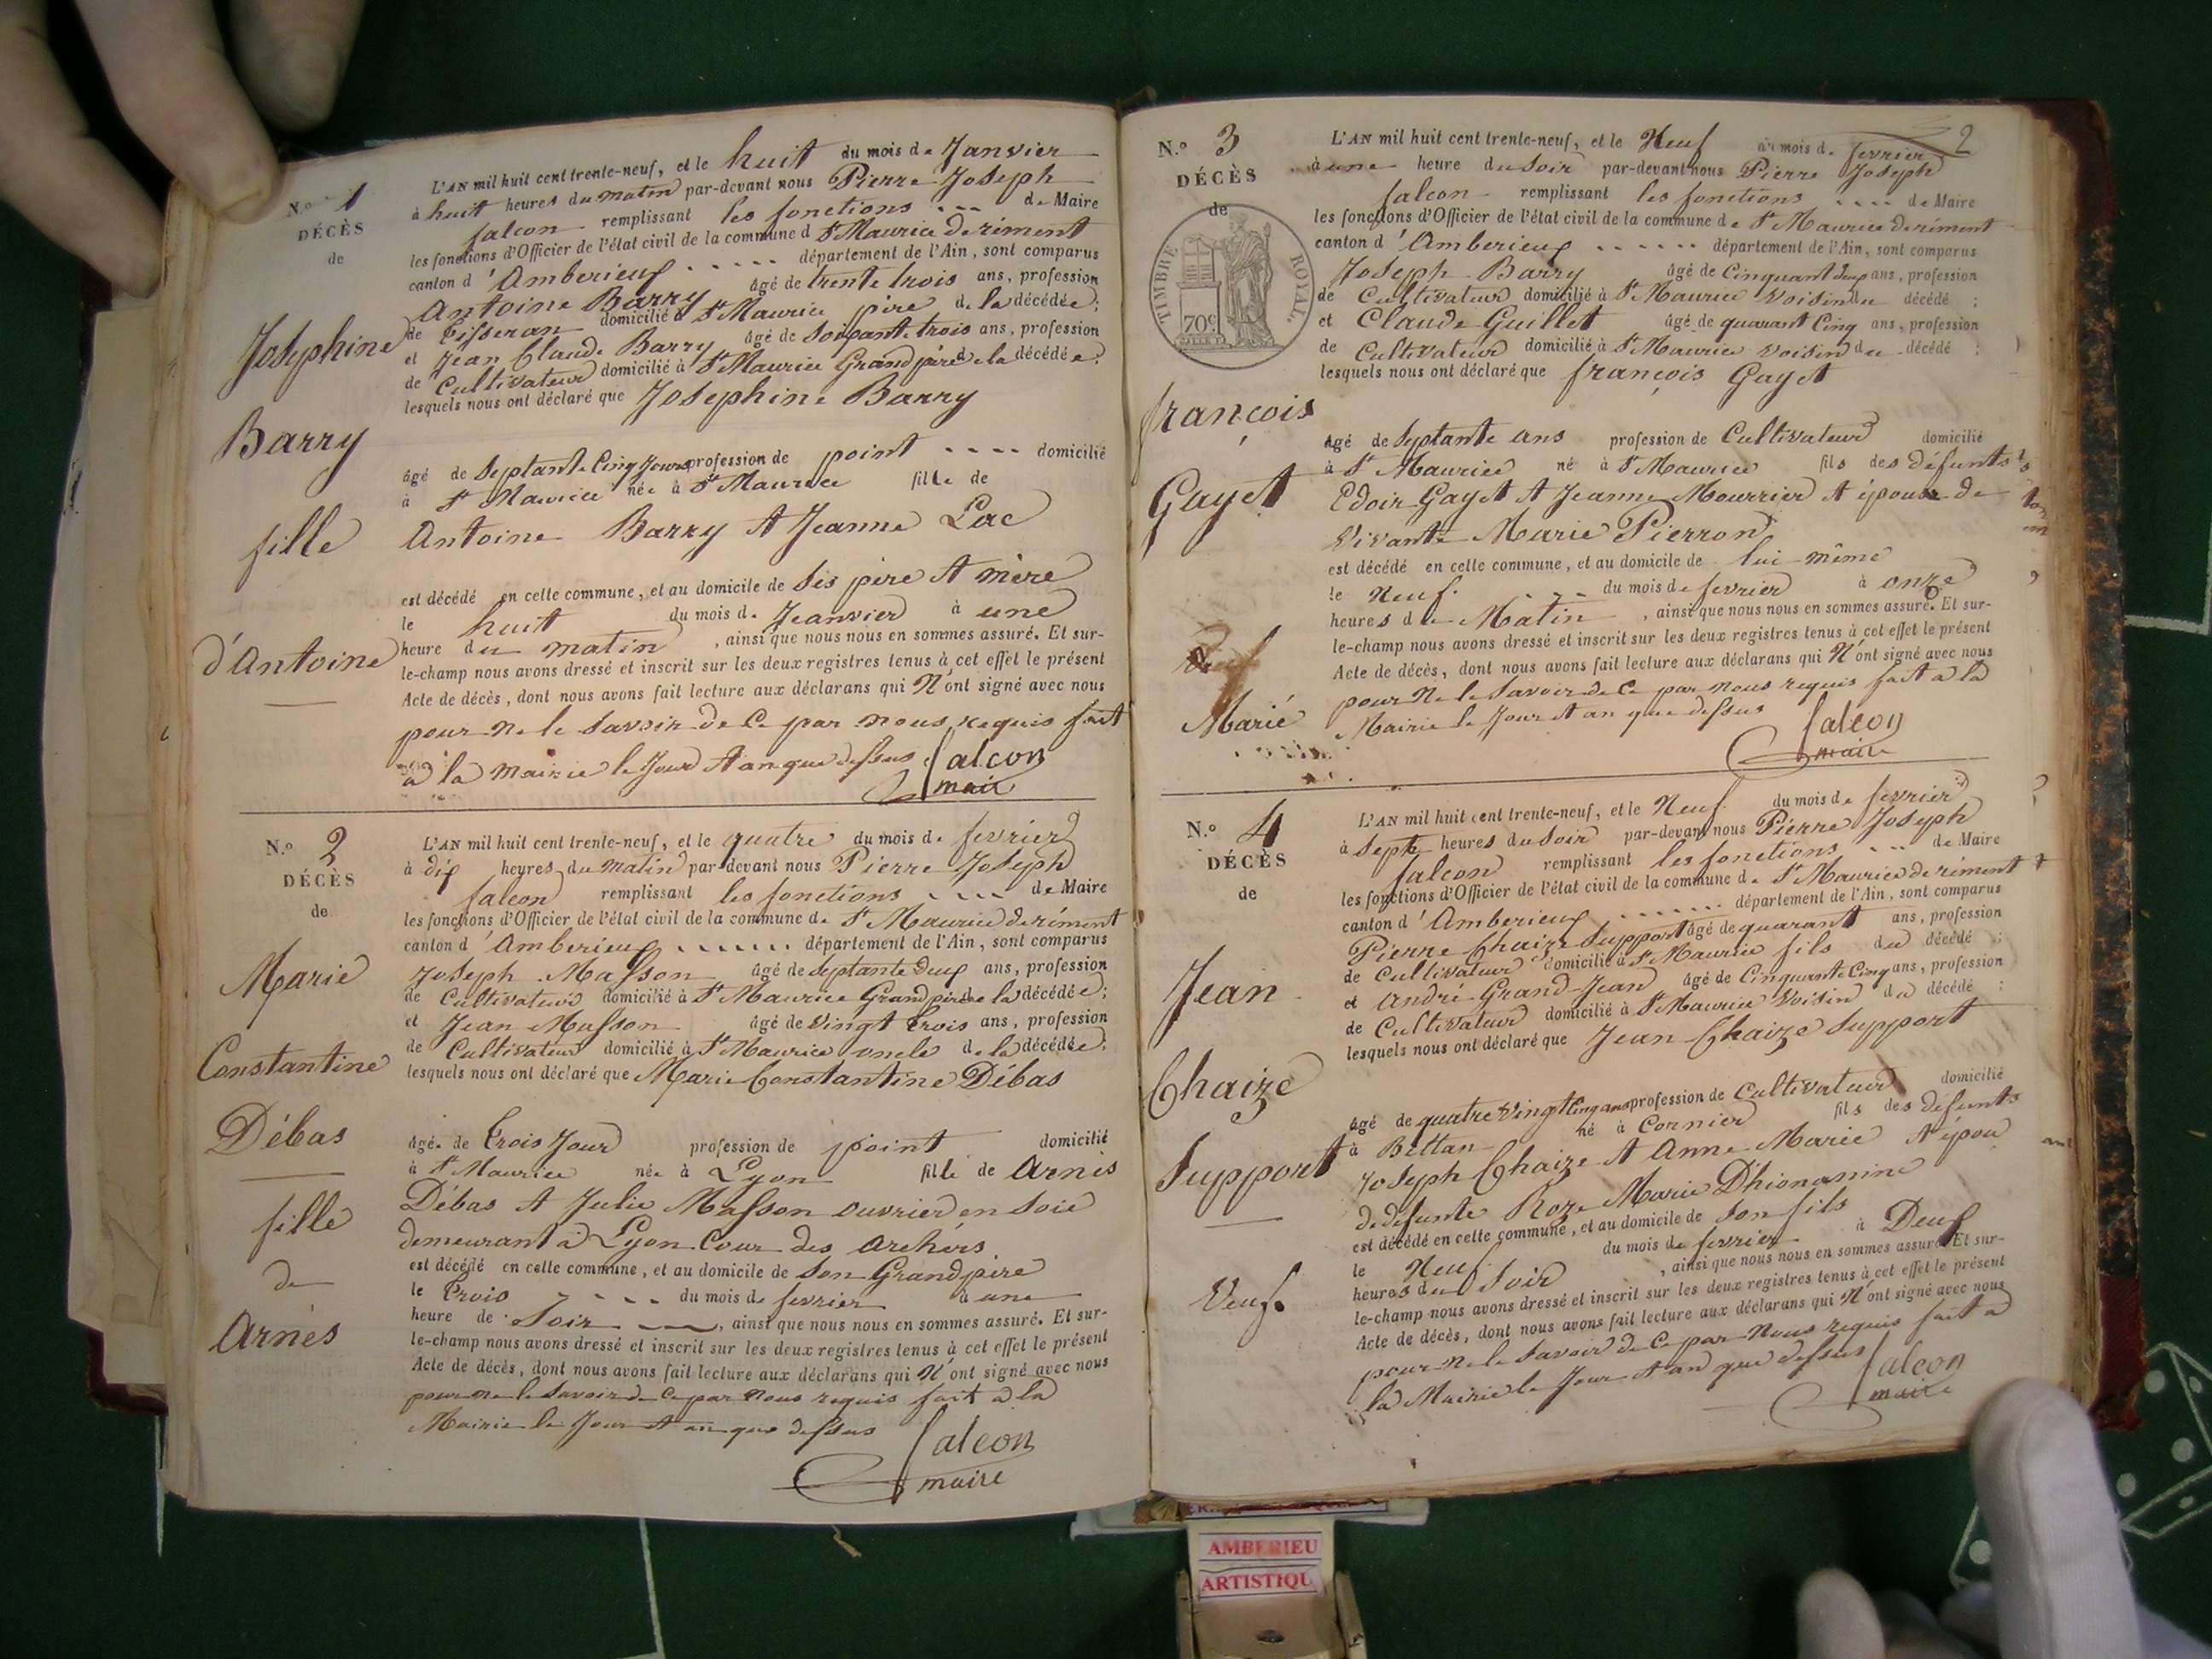 N.º 1
DÉCÈS
de
Josephine
Barry
fille
d'Antoine
L'AN mil huit cent trente-neuf, et le huit du mois de Janvier
à huit heures du matin par-devant nous Pierre Joseph
falcon remplissant les fonctions de Maire
les fonctions d'Officier de l'état civil de la commune d St Maurice de rément
canton d'Amberieux département de l'Ain, sont comparus
Antoine Barry âgé de trente trois ans, profession
de Tisseran domicilié à St Maurice père de la décédée;
et Jean Claude Barry âgé de Soixante trois ans, profession
de Cultivateur domicilié à St Maurice Grand père de la décédée;
lesquels nous ont déclaré que Josephine Barry
âgé de Septante Cinq Jours profession de point domicilié
à St Maurice née à St Maurice fille de
Antoine Barry et Jeanne Lac
est décédé en cette commune, et au domicile de Ses père et mère
le huit du mois de Jeanvier à une
heure du matin, ainsi que nous nous en sommes assuré. Et sur-
le-champ nous avons dressé et inscrit sur les deux registres tenus à cet effet le présent
Acte de décès, dont nous avons fait lecture aux déclarans qui N'ont signé avec nous
pour ne le savoir de ce par nous requis fait
à la mairie le Jour et an que dessus falcon
maire
N.º 2
DÉCÈS
de
Marie
Constantine
Débas
fille
de
Arnès
L'AN mil huit cent trente-neuf, et le quatre du mois de fevrier
à dix heures du matin par-devant nous Pierre Joseph
falcon remplissant les fonctions de Maire
les fonctions d'Officier de l'état civil de la commune de St Maurice de rément
canton d'Amberieux département de l'Ain, sont comparus
Joseph Masson âgé de Septante deux ans, profession
de Cultivateur domicilié à St Maurice Grand père de la décédée;
et Jean Masson âgé de vingt trois ans, profession
de Cultivateur domicilié à St Maurice oncle de la décédée;
lesquels nous ont déclaré que Marie Constantine Débas
âgée de trois Jour profession de point domicilié
à St Maurice née à Lyon fille de Arnès
Débas et Julie Masson ouvrier en Soie
demeurant à Lyon Cour des Archers
est décédé en cette commune, et au domicile de Son Grand père
le trois du mois de fevrier à une
heure de Soir, ainsi que nous nous en sommes assuré. Et sur-
le-champ nous avons dressé et inscrit sur les deux registres tenus à cet effet le présent
Acte de décès, dont nous avons fait lecture aux déclarans qui N'ont signé avec nous
pour ne le savoir de ce par nous requis fait à la
Mairie le Jour et an que dessus
falcon
maire
2
N.º 3
DÉCÈS
de
TIMBRE ROYAL.
70c
françois
Gayet
Marié
L'AN mil huit cent trente-neuf, et le Neuf du mois de fevrier
à une heure du soir par-devant nous Pierre Joseph
falcon remplissant les fonctions de Maire
les fonctions d'Officier de l'état civil de la commune de St Maurice de rément
canton d'Amberieux département de l'Ain, sont comparus
Joseph Barry âgé de Cinquant deux ans, profession
de Cultivateur domicilié à St Maurice voisin du décédé;
et Claude Guillet âgé de quarant Cinq ans, profession
de Cultivateur domicilié à St Maurice voisin du décédé;
lesquels nous ont déclaré que françois Gayet
âgé de Septante ans profession de Cultivateur domicilié
à St Maurice né à St Maurice fils des défunts
Edoir Gayet et Jeanne Mourrier et époux de
vivante Marie Pierron
est décédé en cette commune, et au domicile de lui même
le Neuf du mois de fevrier à onze
heures de Matin, ainsi que nous nous en sommes assuré. Et sur-
le-champ nous avons dressé et inscrit sur les deux registres tenus à cet effet le présent
Acte de décès, dont nous avons fait lecture aux déclarans qui N'ont signé avec nous
pour ne le savoir de ce par nous requis fait à la
Mairie le Jour et an que dessus falcon
maire
N.º 4
DÉCÈS
de
Jean
Chaize
Support
Veuf
L'AN mil huit cent trente-neuf, et le Neuf du mois de fevrier
à Septe heures du soir par-devant nous Pierre Joseph
falcon remplissant les fonctions de Maire
les fonctions d'Officier de l'état civil de la commune de St Maurice de rément
canton d'Amberieux département de l'Ain, sont comparus
Pierre Chaize Support âgé de quarant ans, profession
de Cultivateur domicilié à St Maurice fils du décédé;
et André Grand-Jean âgé de Cinquante Cinq ans, profession
de Cultivateur domicilié à St Maurice voisin du décédé;
lesquels nous ont déclaré que Jean Chaize Support
âgé de quatre vingt Cinq ans profession de Cultivateur domicilié
à Bettan né à Cornier fils des defunts
Joseph Chaize et Anne Marie et épou
de defunte Roze Marie
est décédé en cette commune, et au domicile de Son fils
le Neuf du mois de fevrier à Deux
heures du Soir, ainsi que nous nous en sommes assuré. Et sur-
le-champ nous avons dressé et inscrit sur les deux registres tenus à cet effet le présent
Acte de décès, dont nous avons fait lecture aux déclarans qui N'ont signé avec nous
pour ne le savoir de ce par nous requis fait à
la Mairie le Jour et an que dessus falcon
maire
AMBERIEU
ARTISTIQU